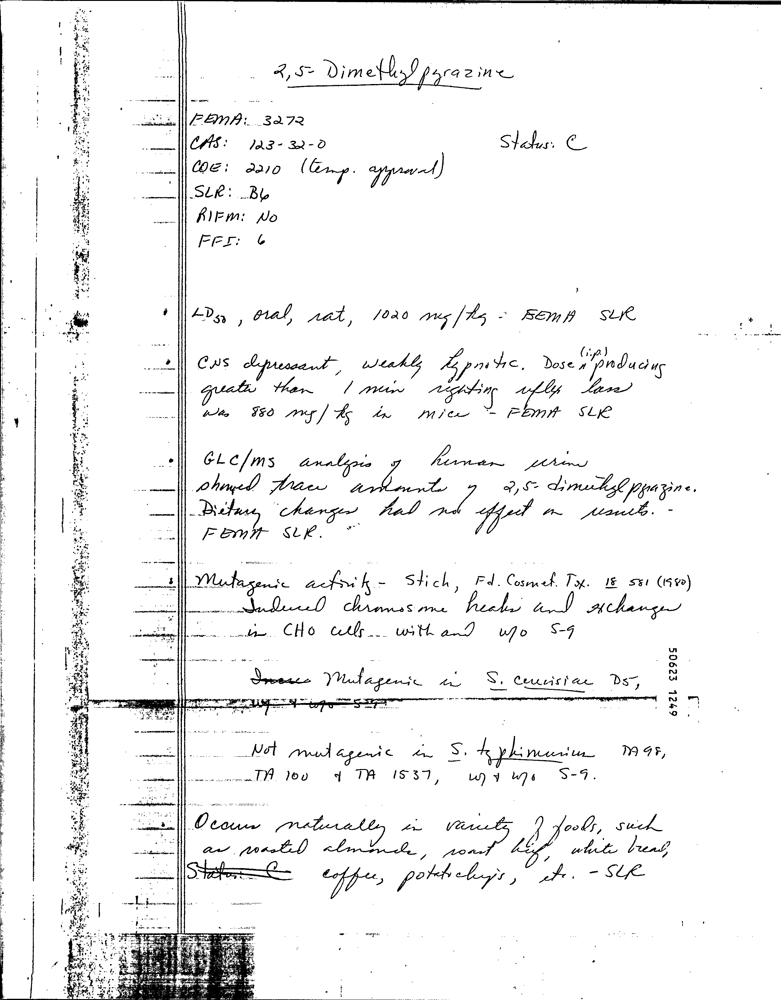 2,5- Dimethylpyrazine
FEMA: 3272
CAS: 123-32-0 Status: C
COE: 2210 (temp. approval)
SLR: B6
RIFM: No
FFI: 6
LD50, oral, rat, 1020 mg/kg - FEMA SLR
CNS depressant, weakly hypnotic. Dose (i.p.) producing
greater than 1 min righting reflex loss
was 880 mg/kg in mice - FEMA SLR
GLC/MS analysis of human urine
showed trace amounts of 2,5-dimethylpyrazine.
Dietary changes had no effect on results. -
FEMA SLR.
Mutagenic activity - Stich, Fd. Cosmet. Tox. 18 581 (1980)
Induced chromosome breaks and exchanges
in CHO cells with and w/o S-9
Mutagenic in S. cerevisiae D5,
w/ & w/o S-9
50623 1249
Not mutagenic in S. typhimurium TA98,
TA 100 & TA 1537, w/ & w/o S-9.
Occurs naturally in variety of foods, such
as roasted almonds, roast beef, white bread,
Status: C coffee, potato chips, etc. - SLR